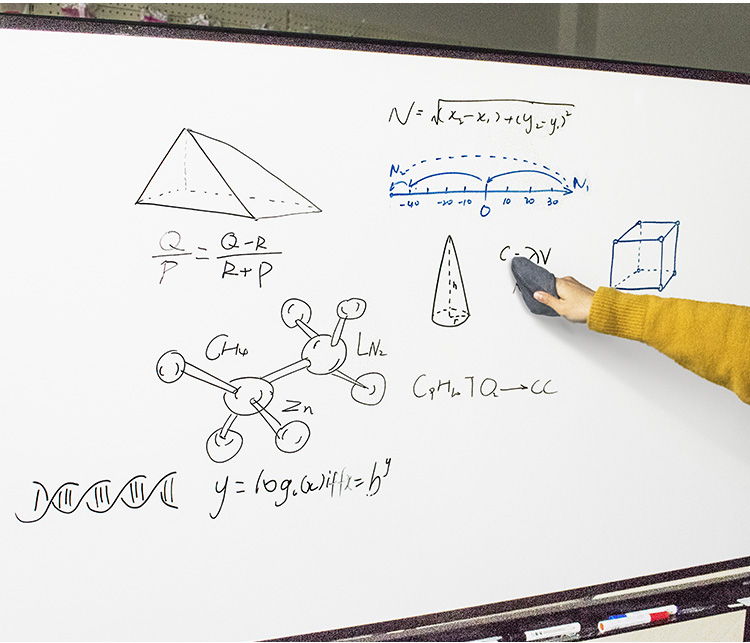 N = √(x₂-x₁)+(y₂-y₁)²
N₂ N₁
-40 -20 -10 0 10 20 30
Q/P = Q-R/R+P
h
r
C = λV
CH₄
LN₂
Zn
y = log₆(x) iff x = b^y